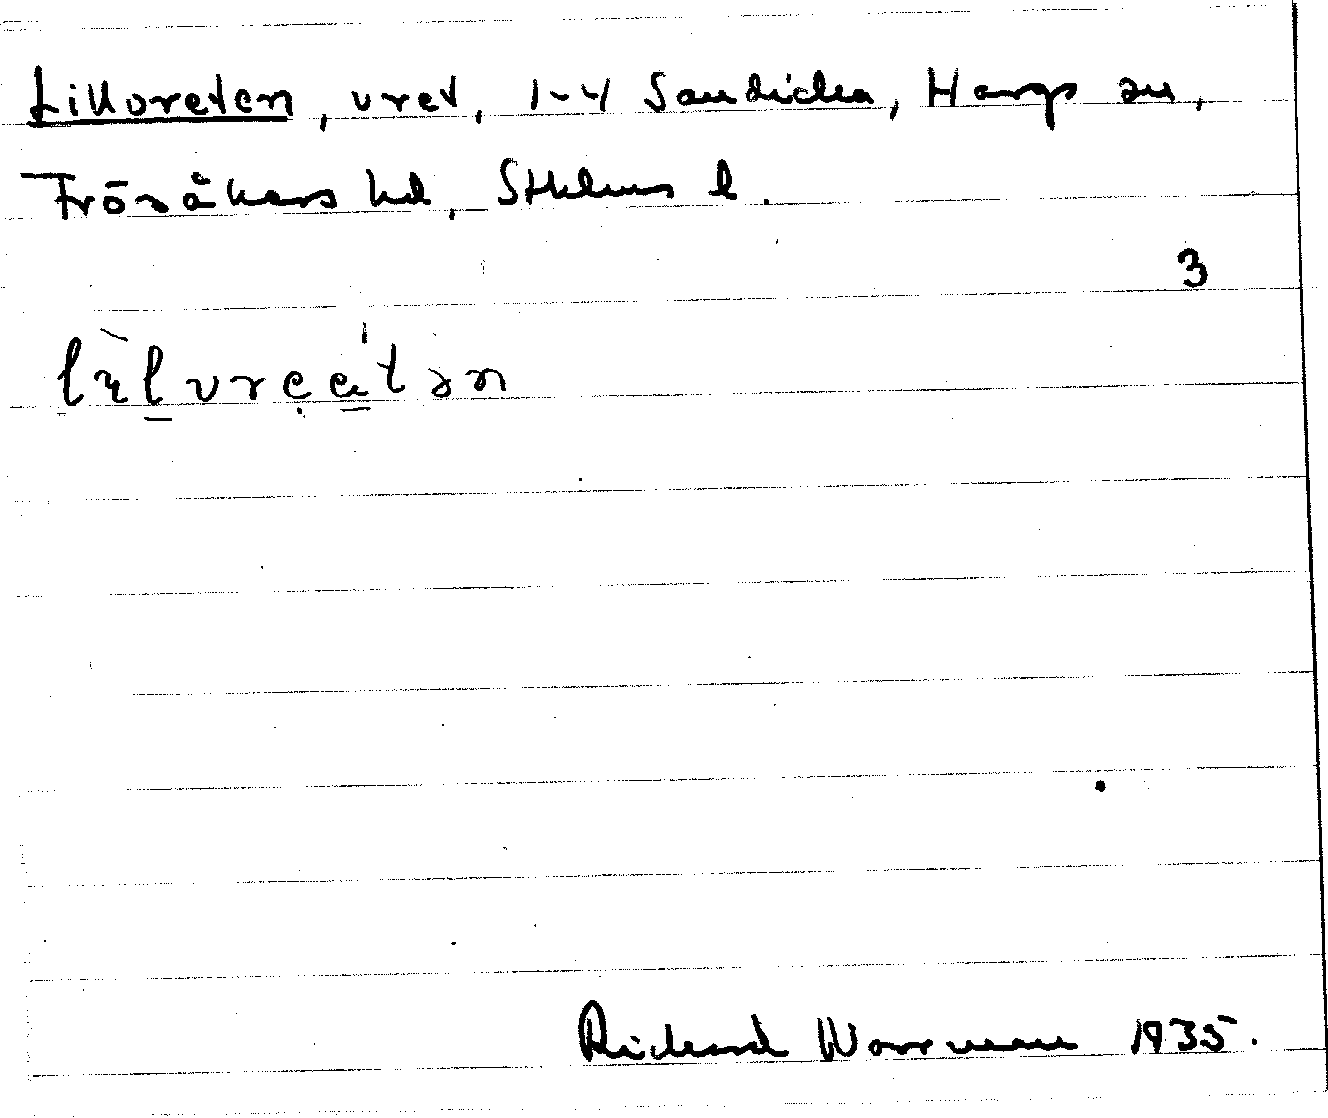 Lillvreten, vret, 1-4 Sandika, Hargs sn,
Frösåkers hd, Sthlms l.
3
Rickard Warrman 1935.